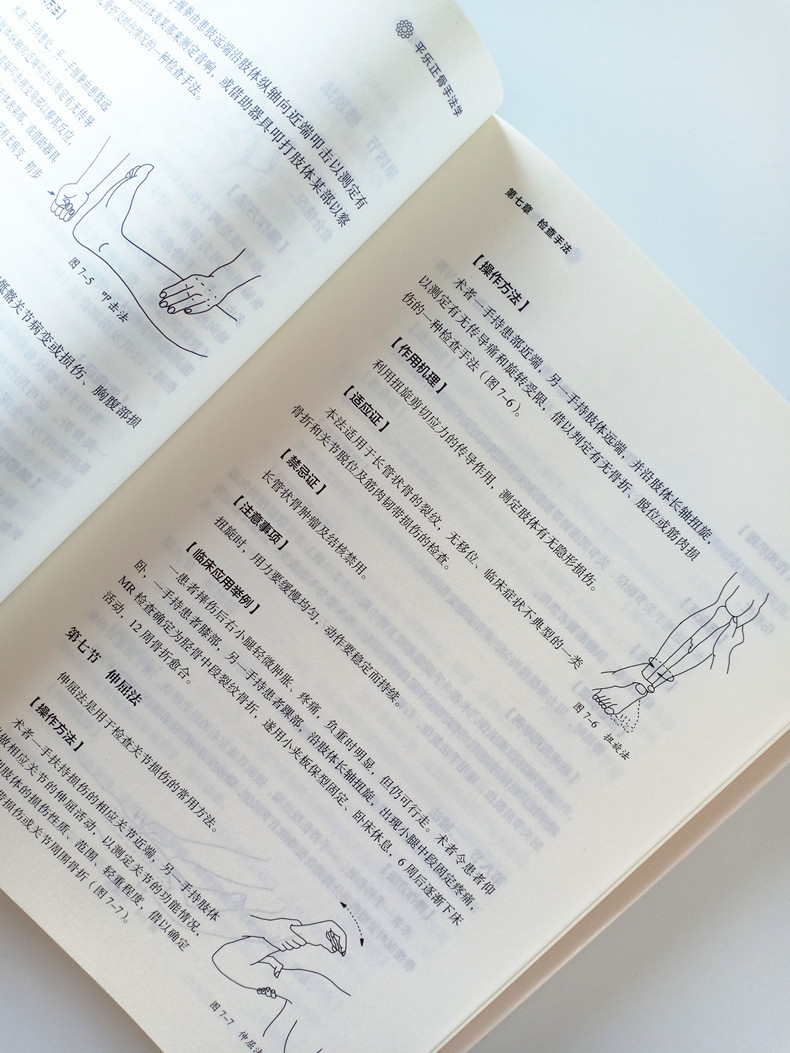 平乐正骨手法学
手握拳由患肢远端沿肢体纵轴向近端叩击以测定有
肢体某部来测定音响，或借助器具叩打肢体某部以察
一种检查手法。
图 7-5 叩击法
骶髂关节病变或损伤、胸腹部损
第七章 检查手法
【操作方法】
术者一手持患部近端，另一手持肢体远端，并沿肢体长轴扭旋，
以测定有无传导痛和旋转受限，借以判定有无骨折、脱位或筋内损
伤的一种检查手法（图 7-6）。
【作用机理】
利用扭旋剪切应力的传导作用，测定肢体有无隐形损伤。
【适应证】
本法适用于长管状骨的裂纹，无移位、临床症状不典型的一类
骨折和关节脱位及筋内韧带损伤的检查。
【禁忌证】
长管状骨肿瘤及结核禁用。
【注意事项】
扭旋时，用力要缓慢均匀，动作要稳定而持续。
【临床应用举例】
一患者摔伤后右小腿轻微肿胀、疼痛，负重时明显，但仍可行走。术者令患者仰
卧，一手持患者膝部，另一手持患者踝部，沿肢体长轴扭旋，出现小腿中段固定疼痛，
MR 检查确定为胫骨中段裂纹骨折，遂用小夹板保型固定、卧床休息，6 周后逐渐下床
活动，12 周骨折愈合。
图 7-6 扭旋法
第七节 伸屈法
伸屈法是用于检查关节损伤的常用方法。
【操作方法】
术者一手扶持损伤的相应关节近端，另一手持肢体
做相应关节的伸屈活动，以测定关节的功能情况，
肢体的损伤性质、范围、轻重程度，借以确定
损伤或关节周围骨折（图 7-7）。
图 7-7 伸屈法